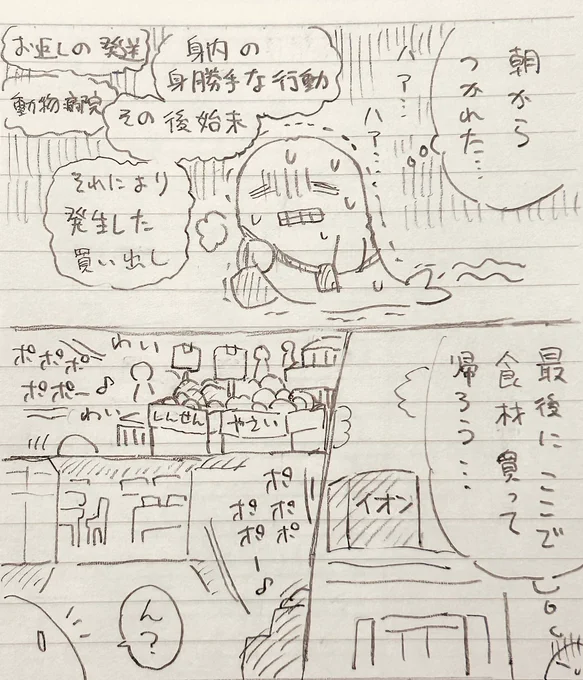 朝から
つかれた…
ハァ…
ハァ…
身内の
身勝手な行動
その後始末
お返しの発送
動物病院
それにより
発生した
買い出し
最後にここで
食材買って
帰ろう…
イオン
わい
わい
ポポポ
ポポー♪
しんせん
やさい
ポ
ポポ
ポポ
ー♪
ん?